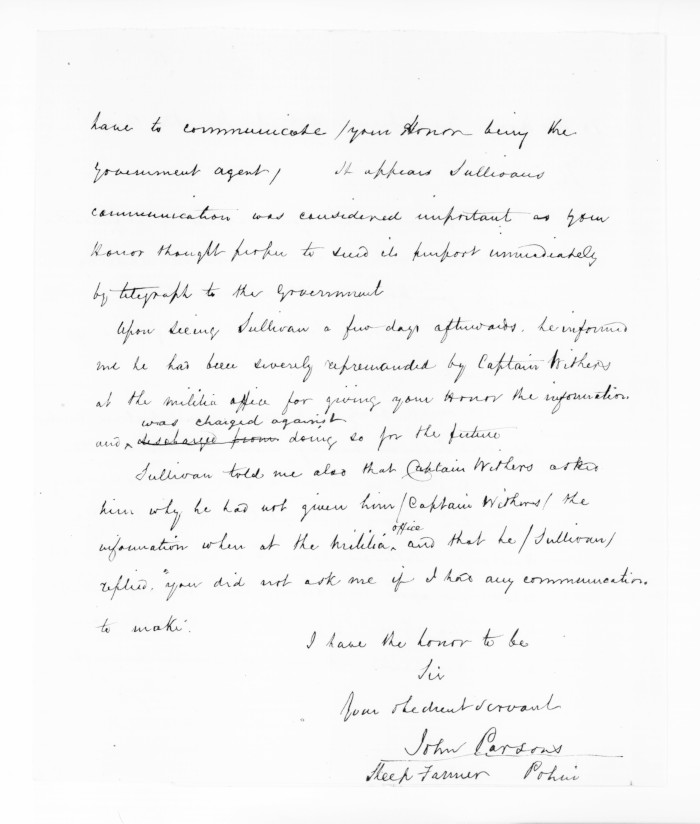 have to communicate /your Honor being the
Government agent/ It appears Sullivans
communication was considered important as your
Honor thought proper to send its purport immediately
by telegraph to the Government
Upon seeing Sullivan a few days afterwards. he informed
me he had been severely repremanded by Captain Withers
at the Militia office for giving your Honor the information.
was charged against
and discharged from doing so for the future
Sullivan told me also that Captain Withers asked
him why he had not given him /Captain Withers/ the
office
information when at the Militia and that he /Sullivan/
replied. "you did not ask me if I had any communication
to make.
I have the honor to be
Sir
Your obedient servant
John Parsons
Sheep Farmer Pohui